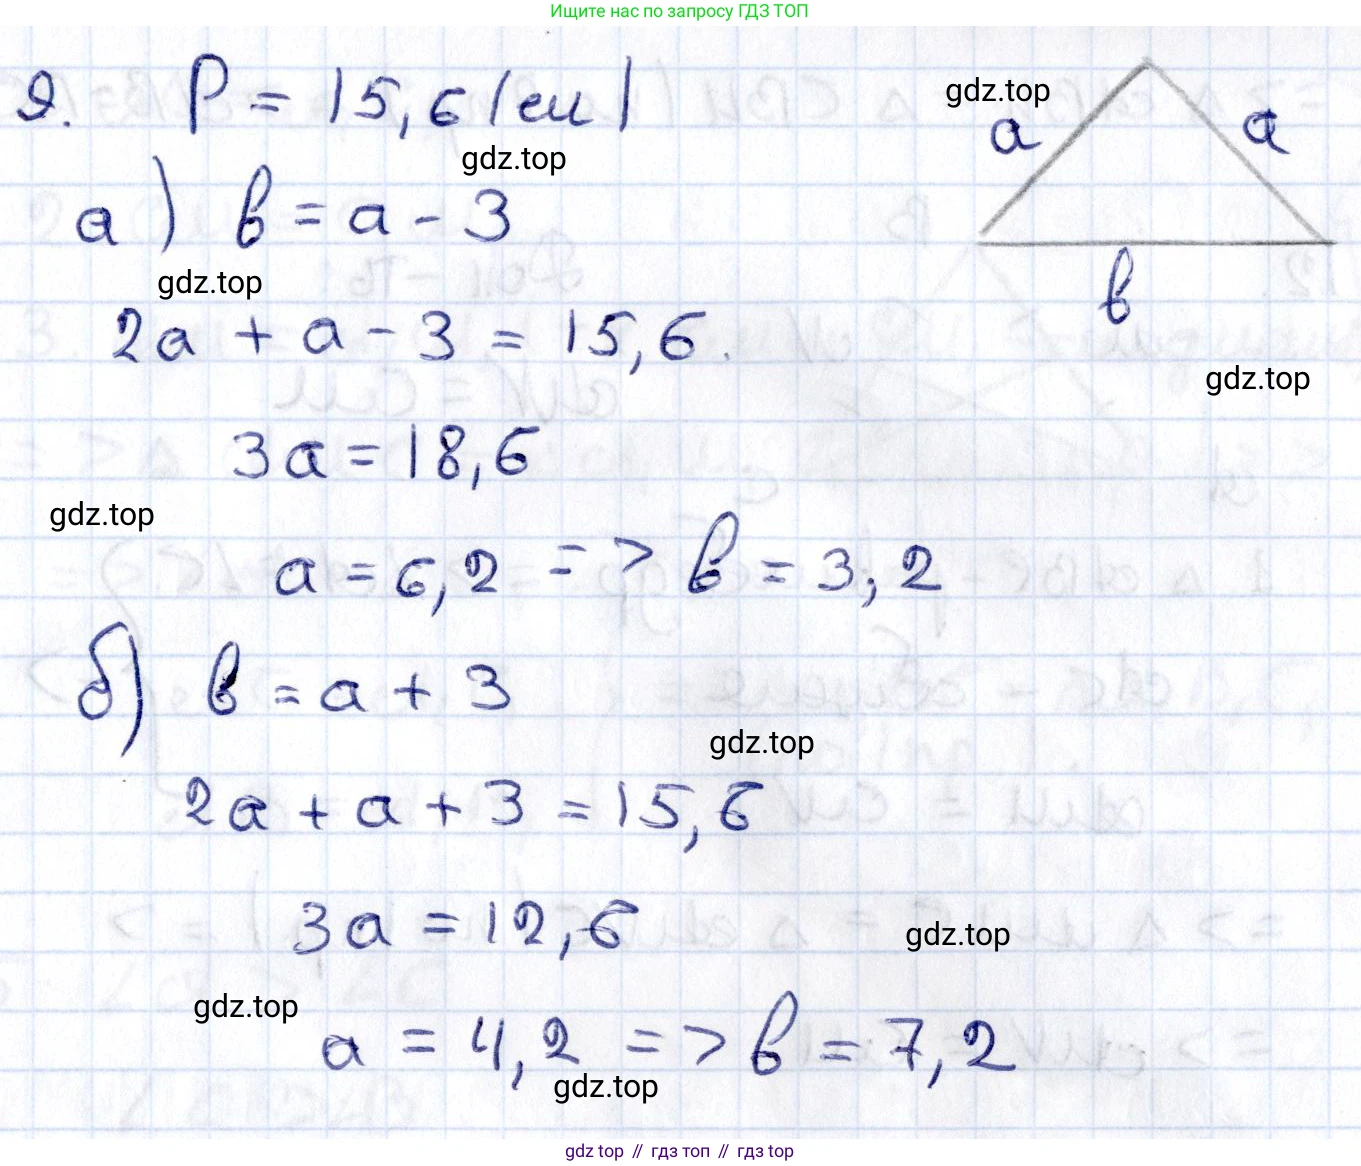 Ищите нас по запросу ГДЗ ТОП
9. P = 15,6 (см)
gdz.top
a
a
gdz.top
а) b = a - 3
gdz.top
b
2a + a - 3 = 15,6.
gdz.top
3a = 18,6
gdz.top
a = 6,2 => b = 3,2
б) b = a + 3
gdz.top
2a + a + 3 = 15,6
3a = 12,6
gdz.top
gdz.top
a = 4,2 => b = 7,2
gdz.top
gdz top // гдз топ // gdz top